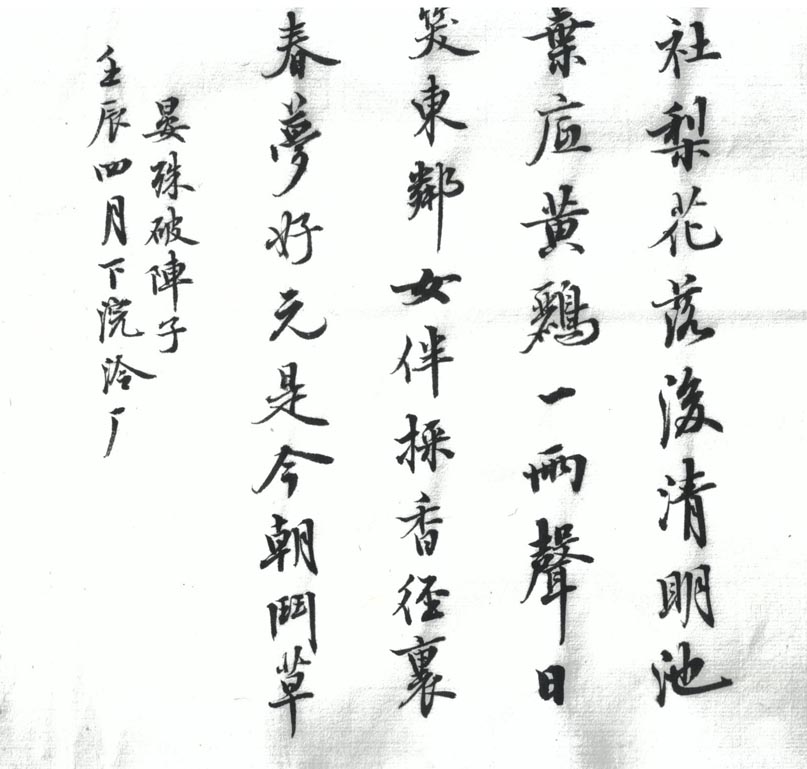 社梨花落後清明池
葉底黃鸝一兩聲日
笑東鄰女伴採香徑裏
春夢好元是今朝鬥草
晏殊破陣子
壬辰四月下浣泠厂